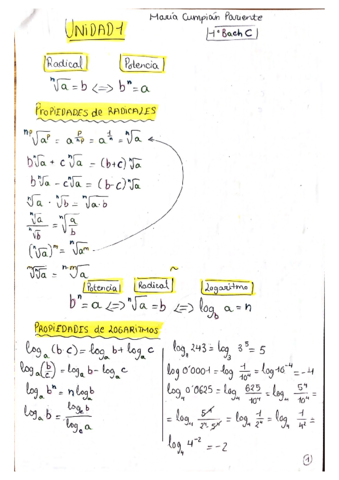 María Cumpián Pariente
UNIDAD 1
1º Bach C
Radical Potencia
ⁿ√a = b <=> bⁿ = a
PROPIEDADES de RADICALES
ⁿᵖ√aᵖ = a^(p/np) = a^(1/n) = ⁿ√a
b ⁿ√a + c ⁿ√a = (b+c) ⁿ√a
b ⁿ√a - c ⁿ√a = (b-c) ⁿ√a
ⁿ√a · ⁿ√b = ⁿ√a·b
ⁿ√a / ⁿ√b = ⁿ√(a/b)
(ⁿ√a)ᵐ = ⁿ√aᵐ
ᵐ√ⁿ√a = ⁿ·ᵐ√a
Potencia Radical Logaritmo
bⁿ = a <=> ⁿ√a = b <=> log_b a = n
PROPIEDADES de LOGARITMOS
logₐ (b·c) = logₐ b + logₐ c
logₐ (b/c) = logₐ b - logₐ c
logₐ bⁿ = n logₐ b
logₐ b = log_c b / log_c a
log₃ 243 = log₃ 3⁵ = 5
log 0'0001 = log 1/10⁴ = log 10⁻⁴ = -4
log₄ 0'0625 = log₄ 625/10⁴ = log₄ 5⁴/10⁴
= log₄ 5⁴/2⁴·5⁴ = log₄ 1/2⁴ = log₄ 1/4² =
log₄ 4⁻² = -2
1